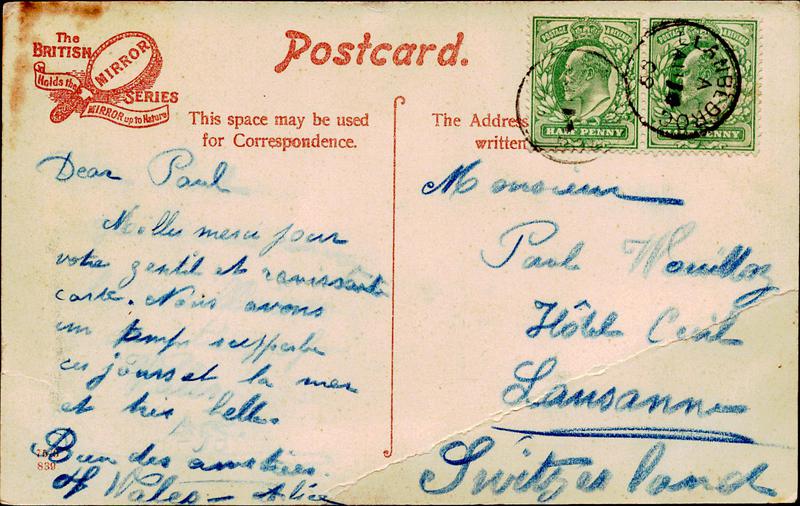 The
BRITISH
MIRROR
Holds the
SERIES
MIRROR up to Nature
Postcard.
This space may be used
for Correspondence.
The Address
written
HALF PENNY
HALF PENNY
Dear Paul
Milles merci pour
votre gentil et ravissante
carte. Nous avons
un temps supperbe
ces jours et la mer
et très belle.
Bien des amitiées.
of Wales — Alice
839
Monsieur
Paul Wouilloz
Hôtel Cecil
Lausanne
Switzerland